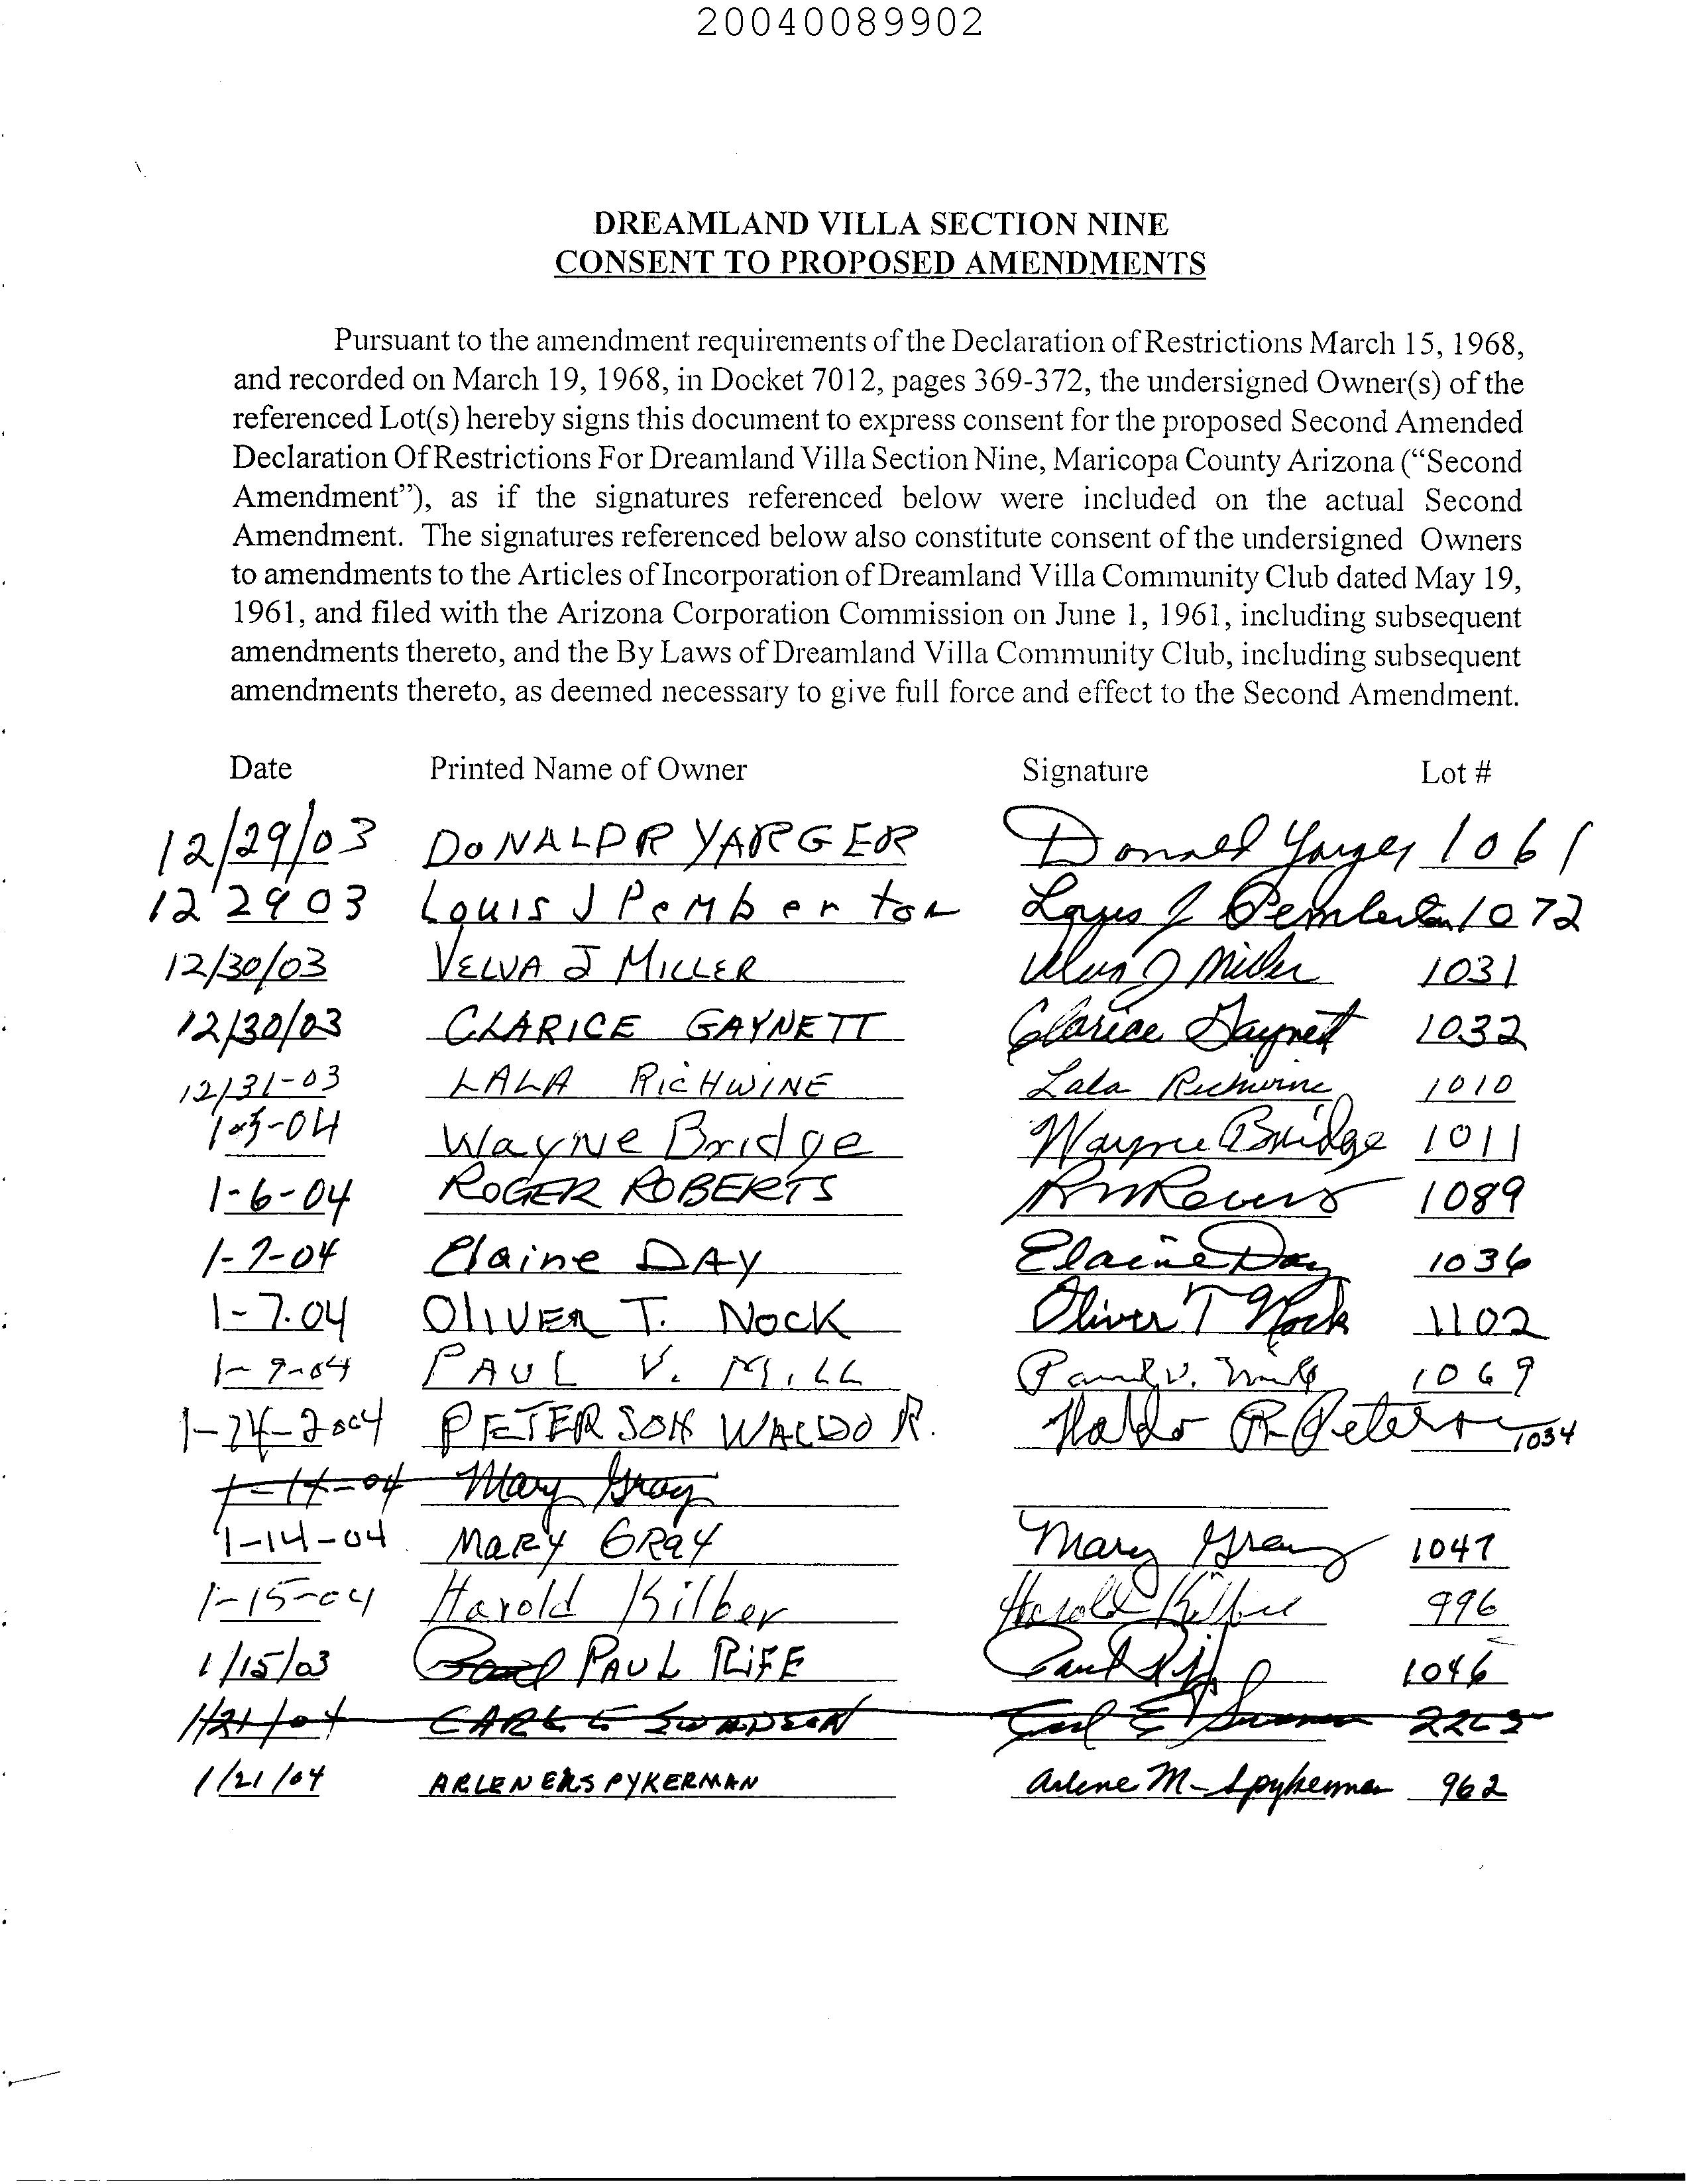 20040089902
DREAMLAND VILLA SECTION NINE
CONSENT TO PROPOSED AMENDMENTS
Pursuant to the amendment requirements of the Declaration of Restrictions March 15, 1968,
and recorded on March 19, 1968, in Docket 7012, pages 369-372, the undersigned Owner(s) of the
referenced Lot(s) hereby signs this document to express consent for the proposed Second Amended
Declaration Of Restrictions For Dreamland Villa Section Nine, Maricopa County Arizona (“Second
Amendment”), as if the signatures referenced below were included on the actual Second
Amendment. The signatures referenced below also constitute consent of the undersigned Owners
to amendments to the Articles of Incorporation of Dreamland Villa Community Club dated May 19,
1961, and filed with the Arizona Corporation Commission on June 1, 1961, including subsequent
amendments thereto, and the By Laws of Dreamland Villa Community Club, including subsequent
amendments thereto, as deemed necessary to give full force and effect to the Second Amendment.
Date Printed Name of Owner Signature Lot #
12/29/03 DONALD R YARGER Donald Yarger 1061
12 29 03 Louis J Pemberton Louis J Pemberton 1072
12/30/03 VELVA J MILLER Velva J Miller 1031
12/30/03 CLARICE GAYNETT Clarice Gaynett 1032
12/31-03 LALA RICHWINE Lala Richwine 1010
1-5-04 Wayne Bridge Wayne Bridge 1011
1-6-04 ROGER ROBERTS 1089
1-7-04 Elaine DAY Elaine Day 1036
1-7.04 OLIVER T. NOCK Oliver T Nock 1102
1-9-04 PAUL V. MILL Paul V. Mill 1069
1-24-2004 PETERSON WALDO R. Waldo R Peterson 1034
1-14-04 Mary Gray
1-14-04 MARY GRAY Mary Gray 1047
1-15-04 Harold Kilber Harold Kilber 996
1/15/03 PAUL RIFE Paul Rife 1046
1/21/04 CARL E SWANSON Carl E Swanson 2263
1/21/04 ARLENE SPYKERMAN Arlene M Spykerman 962